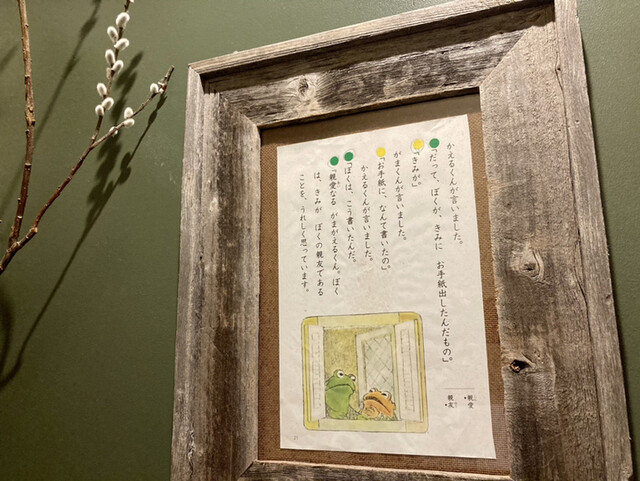 かえるくんが言いました。
「だって、ぼくが、きみに お手紙出したんだもの」。
「きみが」。
がまくんが言いました。
「お手紙に、なんて書いたの」。
かえるくんが言いました。
「ぼくは、こう書いたんだ。
「親愛なる がまがえるくん。ぼく
は、きみが ぼくの親友である
ことを、うれしく思っています。
親愛
親友